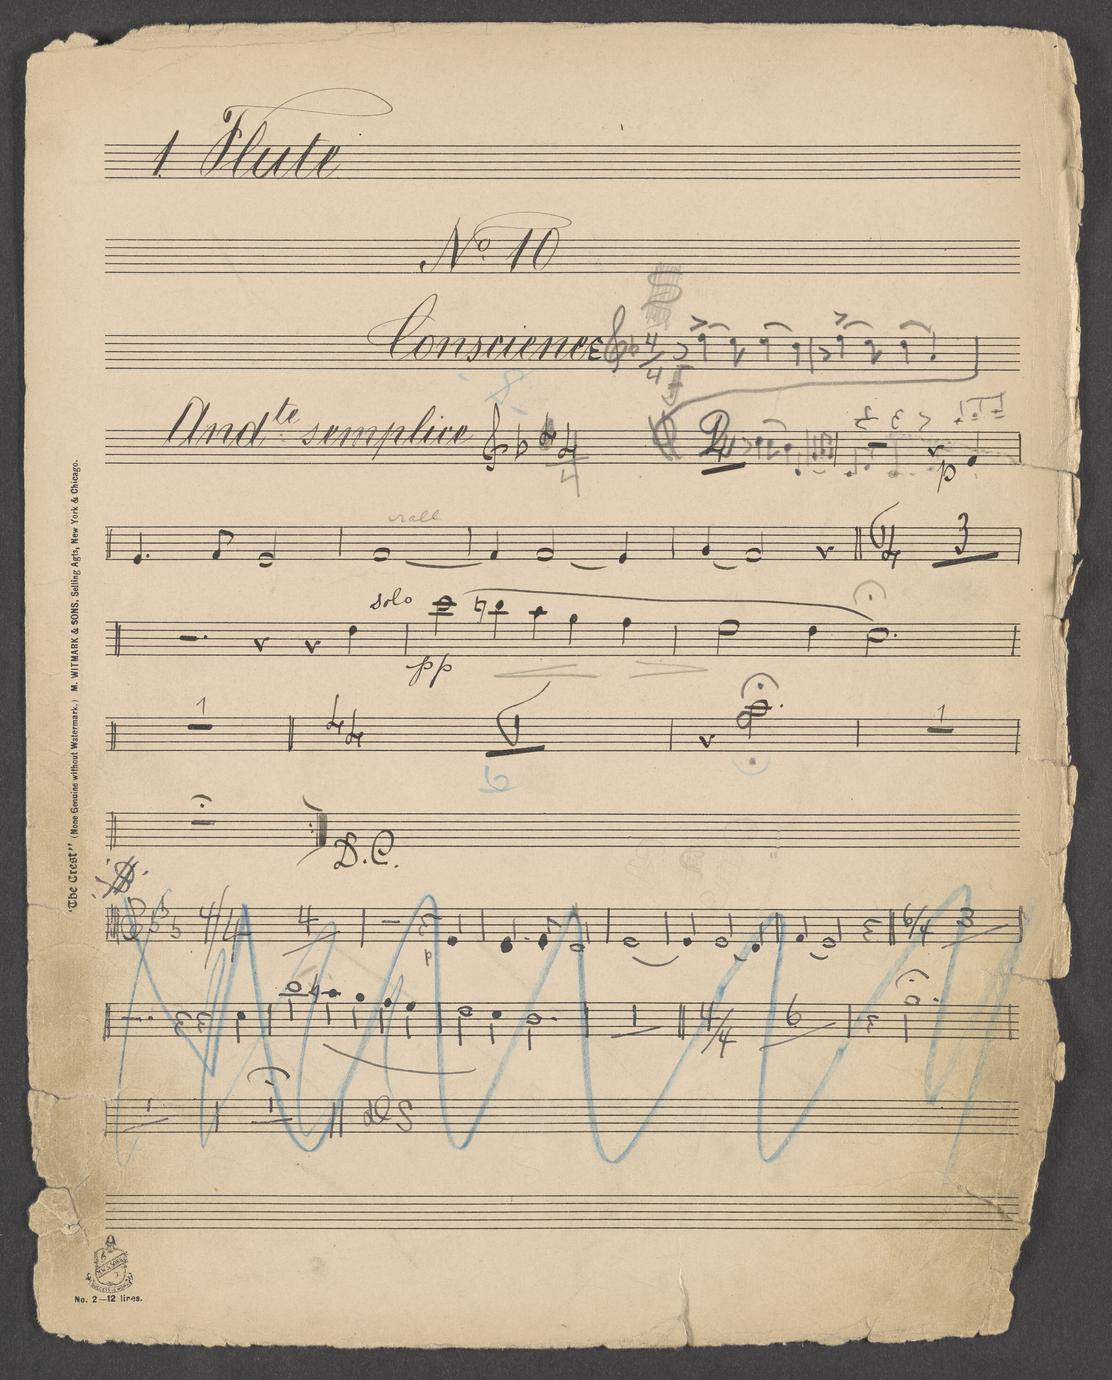 1 Flute
No 10
Conscience
4
4
Andte semplice
4
4
p
rall
6
4
3
solo
pp
1
4
4
1
6
D.C.
4/4
4
6/4
3
4/4
6
1
dlS
"The Crest" (None Genuine without Watermark.) M. WITMARK & SONS, Selling Agts, New York & Chicago.
No. 2—12 lines.